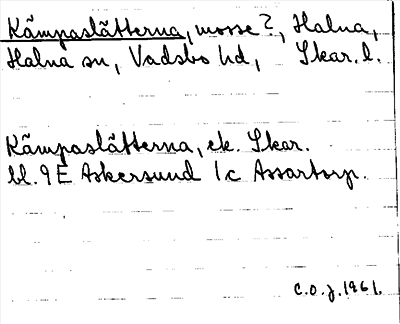 Kämpaslätterna, mosse?, Halna,
Halna sn, Vadsbo hd, Skar. l.
Kämpaslätterna, ek. Skar.
bl. 9E Askersund 1c Assartorp.
C.O.J. 1961.